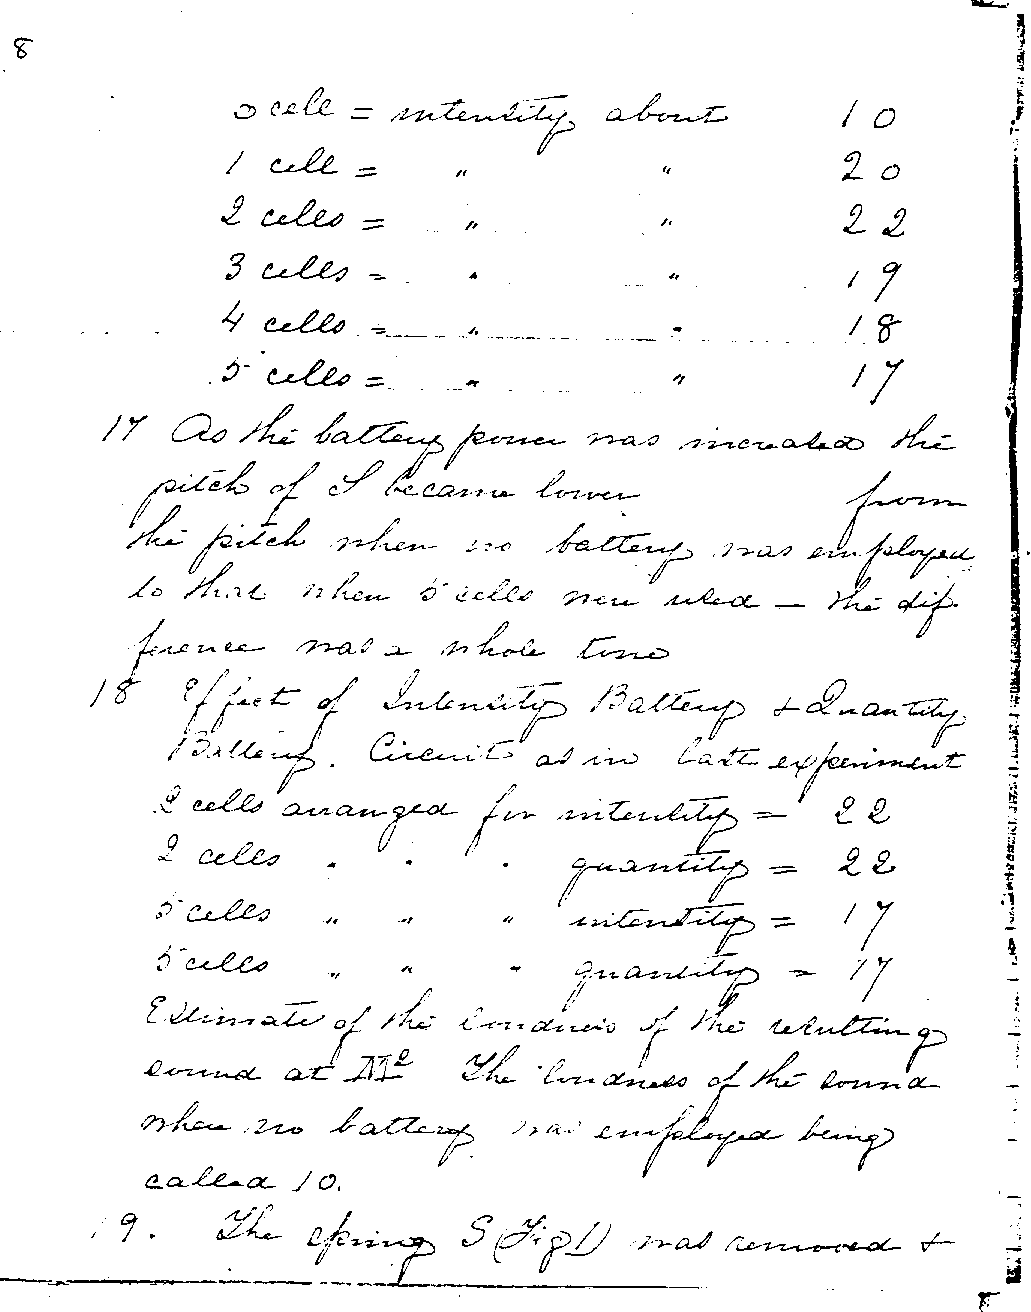 8
0 cell = intensity about 10
1 cell = " " 20
2 cells = " " 22
3 cells = " " 19
4 cells = " " 18
5 cells = " " 17
17 As the battery power was increased the
pitch of S became lower from
the pitch when no battery was employed
to that when 5 cells were used — the dif-
ference was a whole tone
18 Effect of Intensity Battery & Quantity
Battery. Circuit as in last experiment
2 cells arranged for intensity = 22
2 cells " " " quantity = 22
5 cells " " " intensity = 17
5 cells " " " quantity = 17
Estimate of the loudness of the resulting
sound at M² The loudness of the sound
when no battery was employed being
called 10.
19. The spring S (Fig 1) was removed &